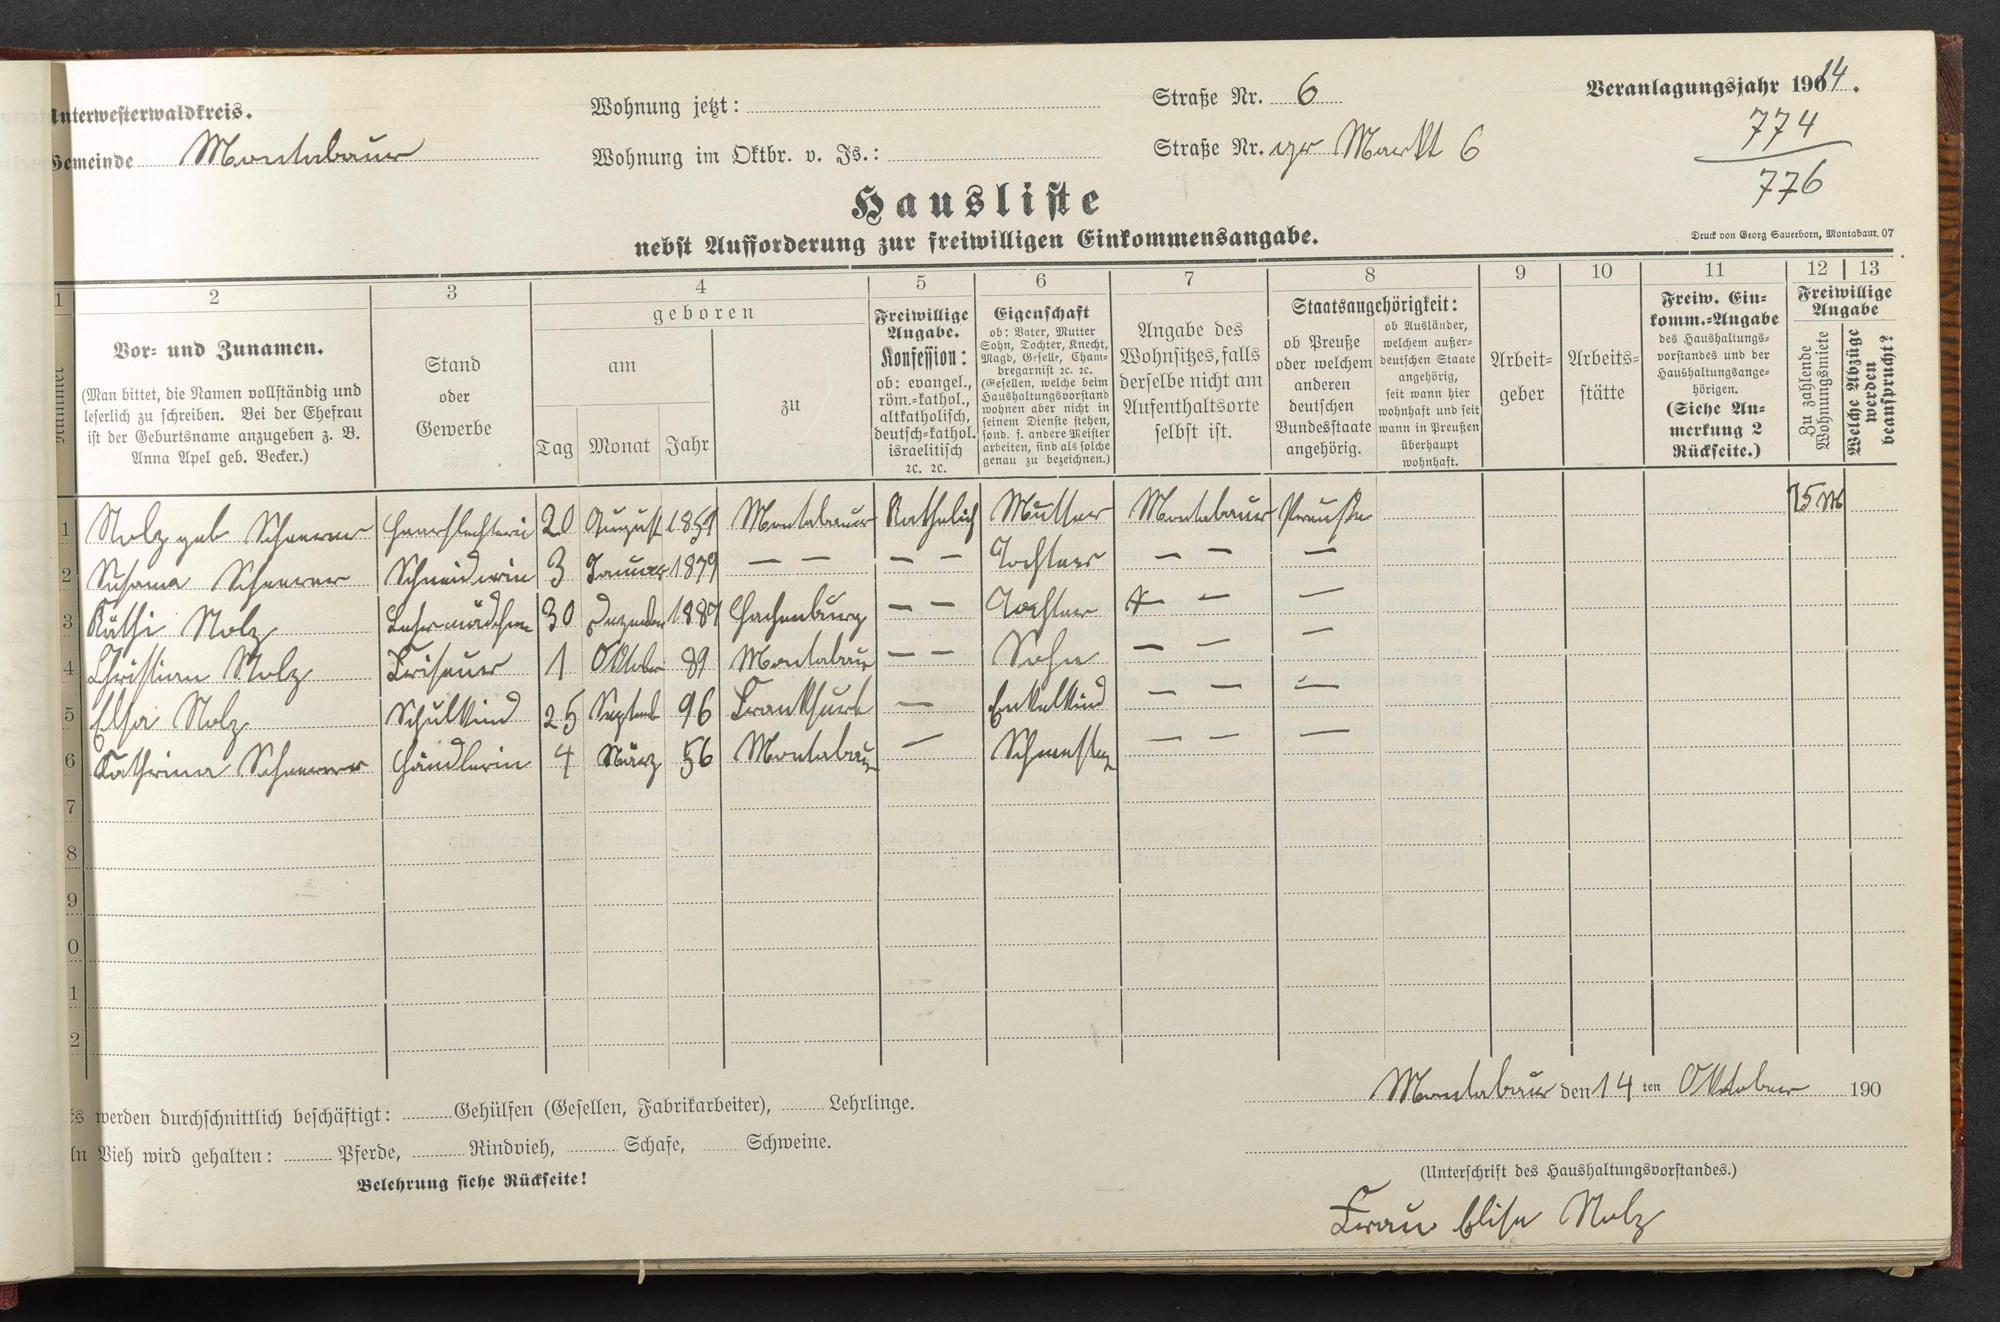 Unterwesterwaldkreis.
Gemeinde Montabaur
Wohnung jetzt:
Wohnung im Oktbr. v. Js.:
Straße Nr. 6
Straße Nr. gr Markt 6
Veranlagungsjahr 1914.
774
776
Hausliste
nebst Aufforderung zur freiwilligen Einkommensangabe.
Druck von Georg Sauerborn, Montabaur. 07
1 2 3 4 5 6 7 8 9 10 11 12 13
Nummer
Vor- und Zunamen.
(Man bittet, die Namen vollständig und
leserlich zu schreiben. Bei der Ehefrau
ist der Geburtsname anzugeben z. B.
Anna Apel geb. Becker.)
Stand
oder
Gewerbe
geboren
am
Tag Monat Jahr
zu
Freiwillige
Angabe.
Konfession:
ob: evangel.,
röm.-kathol.,
altkatholisch,
deutsch-kathol.
israelitisch
ꝛc. ꝛc.
Eigenschaft
ob: Vater, Mutter
Sohn, Tochter, Knecht,
Magd, Geselle, Cham-
bregarnist ꝛc. ꝛc.
(Gesellen, welche beim
Haushaltungsvorstand
wohnen aber nicht in
seinem Dienste stehen,
sond. f. andere Meister
arbeiten, sind als solche
genau zu bezeichnen.)
Angabe des
Wohnsitzes, falls
derselbe nicht am
Aufenthaltsorte
selbst ist.
Staatsangehörigkeit:
ob Preuße
oder welchem
anderen
deutschen
Bundesstaate
angehörig.
ob Ausländer,
welchem außer-
deutschen Staate
angehörig,
seit wann hier
wohnhaft und seit
wann in Preußen
überhaupt
wohnhaft.
Arbeit-
geber
Arbeits-
stätte
Freiw. Ein-
komm.-Angabe
des Haushaltungs-
vorstandes und der
Haushaltungsange-
hörigen.
(Siehe An-
merkung 2
Rückseite.)
Freiwillige
Angabe
Zu zahlende
Wohnungsmiete
Welche Abzüge
werden
beansprucht?
1 Nolz geb Scheurer 20 August 1859 Montabaur Katholich Mutter Montabaur Preuße 75 M
2 Susana Scheurer Schneiderin 3 Januar 1879 — — — — Tochter — — —
3 Käthi Nolz Lehrmädchen 30 Dezember 1887 Hachenburg — — Tochter — — —
4 Christian Nolz Friseuer 1 Oktober 89 Montabaur — — Sohn — — —
5 Elsa Nolz Schulkind 25 Septemb 96 Frankfurt — Enkelkind — — —
6 Kathrina Scheurer Händlerin 4 März 56 Montabaur — Schwester — — —
7
8
9
0
1
2
Es werden durchschnittlich beschäftigt: Gehülfen (Gesellen, Fabrikarbeiter), Lehrlinge.
An Vieh wird gehalten: Pferde, Rindvieh, Schafe, Schweine.
Belehrung siehe Rückseite!
Montabaur den 14 ten Oktober 190
(Unterschrift des Haushaltungsvorstandes.)
Frau Elise Nolz